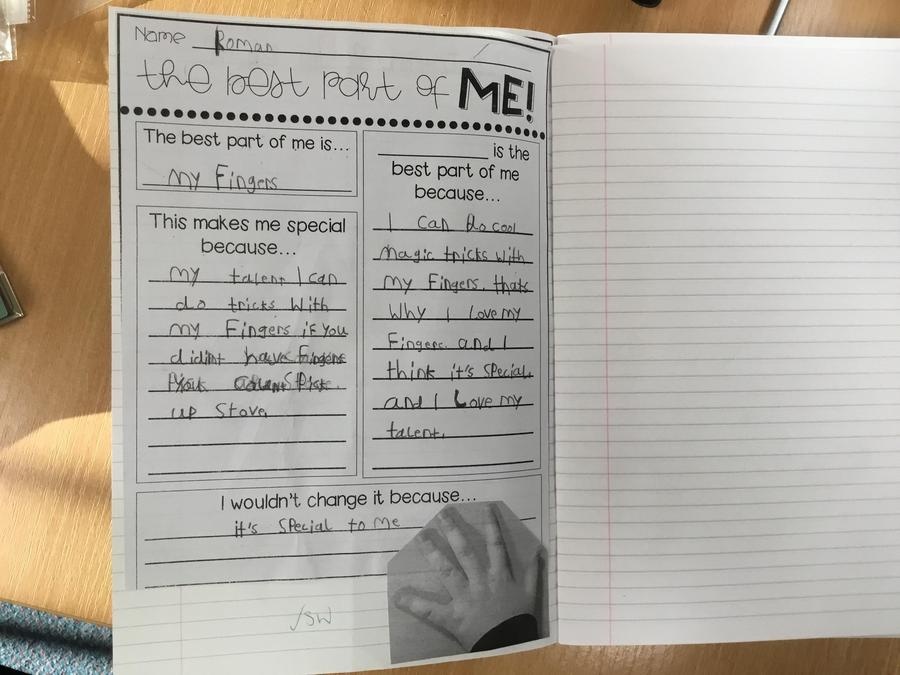 Name Roman
the best part of ME!
The best part of me is...
my Fingers
This makes me special
because...
my talent I can
do tricks With
my Fingers iF You
didint have Fingers
up Stove
is the
best part of me
because...
I can do cool
magic tricks with
my Fingers. thats
Why I Love my
Fingers. and I
think it's special.
and I Love my
talent.
I wouldn't change it because...
it's special to me
/SW